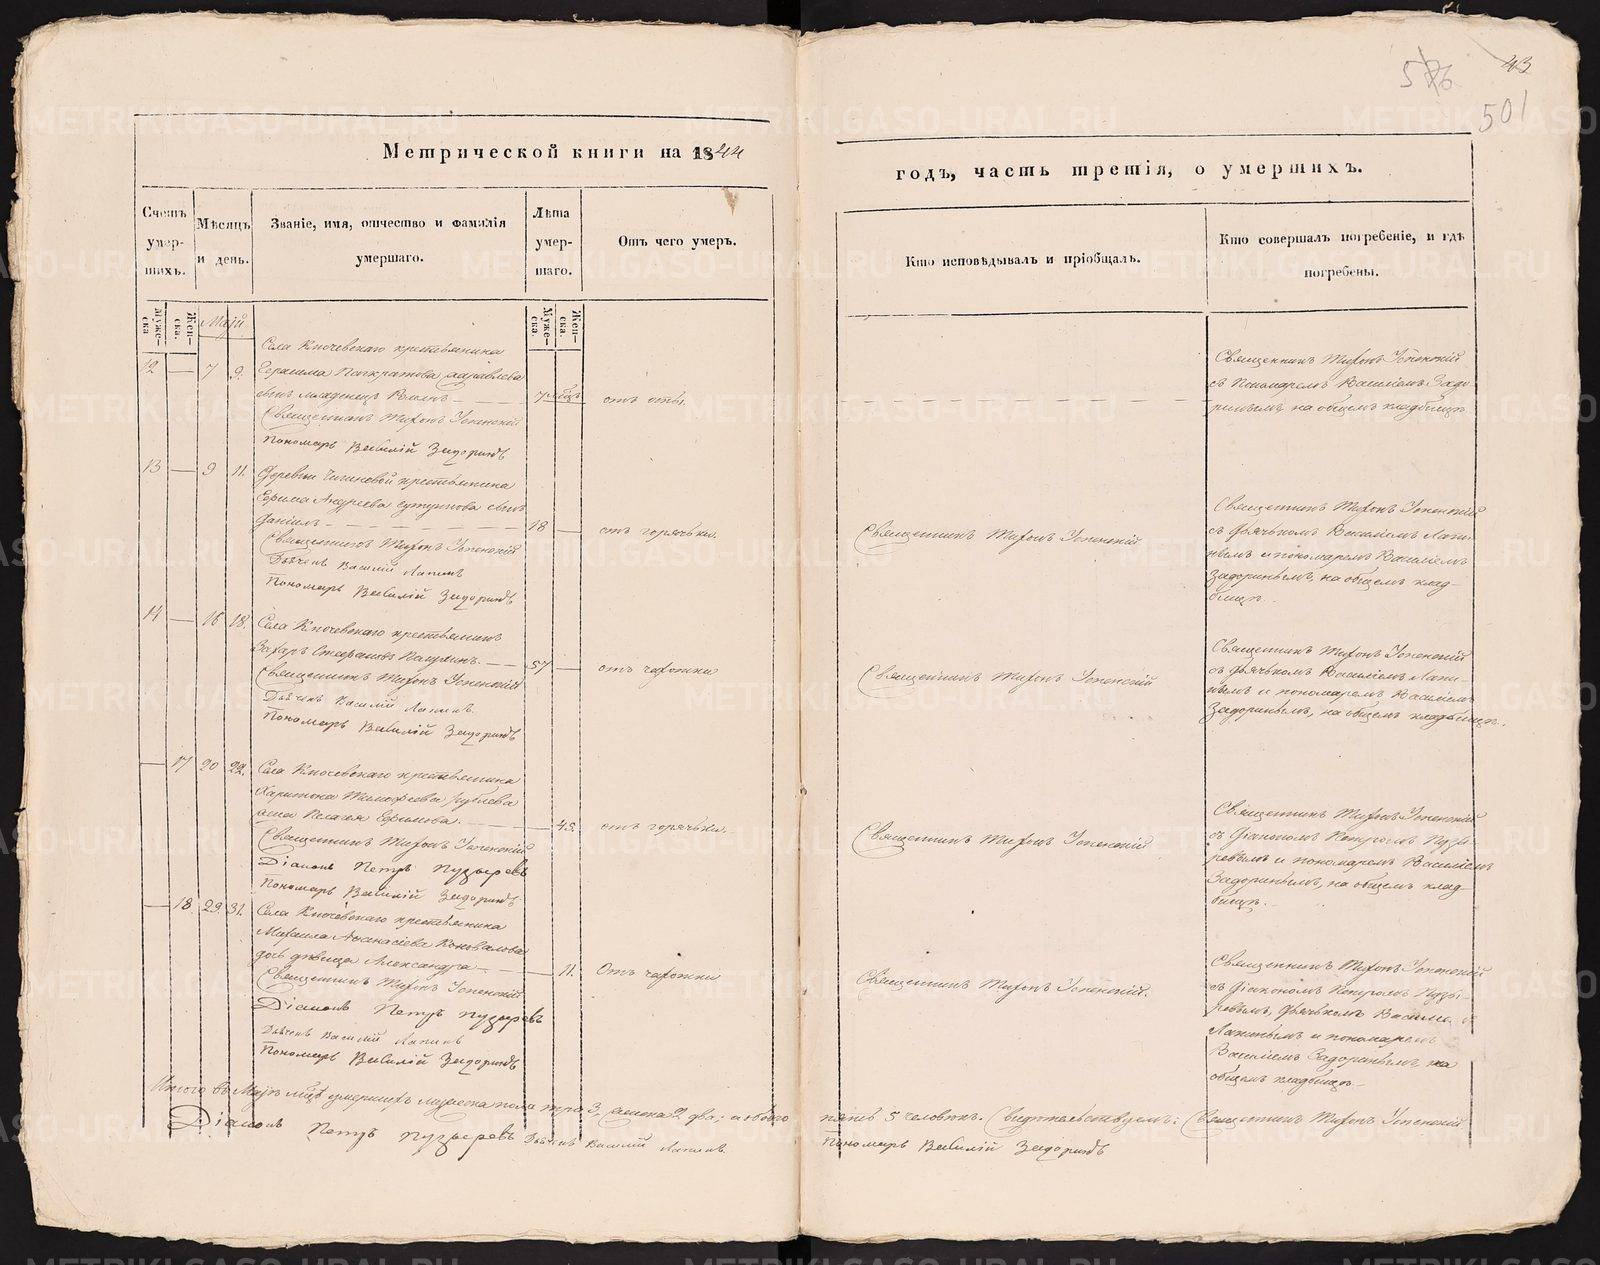 576 43
501
Метрической книги на 1844
годъ, часть третія, о умершихъ.
Счетъ умер-шихъ.
Мѣсяцъ и день.
Званіе, имя, отчество и фамилія умершаго.
Лѣта умер-шаго.
Отъ чего умеръ.
Кто исповѣдывалъ и пріобщалъ.
Кто совершалъ погребеніе, и гдѣ погребены.
Муже-ска
Жен-ска.
Муже-ска.
Жен-ска.
Май
Села Ключевскаго крестьянина
12 — 7 9. Герасима Панкратова
сынъ младенецъ — 7 мѣсц. отъ оспы.
Священникъ Тихонъ Успенскій
Пономарь Василій Задоринъ
Священникъ Тихонъ Успенскій
съ Пономаремъ Василіемъ Задо-
ринымъ на общемъ кладбищѣ.
13 — 9 11. Деревни крестьянина
Ефима Андреева сынъ
Даніилъ — 18 — отъ горячки.
Священникъ Тихонъ Успенскій
Дьячекъ Василій Лапинъ
Пономарь Василій Задоринъ
Священникъ Тихонъ Успенскій
Священникъ Тихонъ Успенскій
съ дьячкомъ Василіемъ Лапи-
нымъ и пономаремъ Василіемъ
Задоринымъ, на общемъ клад-
бищѣ.
14 — 16 18. Села Ключевскаго крестьянинъ
Захаръ Стефановъ — 57 — отъ чахотки
Священникъ Тихонъ Успенскій
Дьячекъ Василій Лапинъ
Пономарь Василій Задоринъ
Священникъ Тихонъ Успенскій
Священникъ Тихонъ Успенскій
съ дьячкомъ Василіемъ Лапи-
нымъ и пономаремъ Василіемъ
Задоринымъ, на общемъ кладбищѣ.
— 17 20 22. Села Ключевскаго крестьянина
Харитона Тимофеева
жена Пелагея Ефимова. — 45. отъ горячки.
Священникъ Тихонъ Успенскій
Діаконъ Петръ Пузыревъ
Пономарь Василій Задоринъ
Священникъ Тихонъ Успенскій
Священникъ Тихонъ Успенскій
съ діакономъ Петромъ Пузы-
ревымъ и пономаремъ Василіемъ
Задоринымъ, на общемъ клад-
бищѣ.
— 18 29 31. Села Ключевскаго крестьянина
Михаила Афанасіева Коновалова
дочь дѣвица Александра — 11. Отъ чахотки
Священникъ Тихонъ Успенскій
Діаконъ Петръ Пузыревъ
Дьячекъ Василій Лапинъ
Пономарь Василій Задоринъ
Священникъ Тихонъ Успенскій.
Священникъ Тихонъ Успенскій
съ діакономъ Петромъ Пузы-
ревымъ, дьячкомъ Василіемъ
Лапинымъ и пономаремъ
Василіемъ Задоринымъ, на
общемъ кладбищѣ.
Итого въ Маѣ мцѣ умершихъ мужеска пола три 3, женска 2 два; а обоего
пять 5 человѣкъ. Свидѣтельствуемъ: Священникъ Тихонъ Успенскій
Діаконъ Петръ Пузыревъ Дьячекъ Василій Лапинъ
Пономарь Василій Задоринъ
METRIKI.GASO-URAL.RU